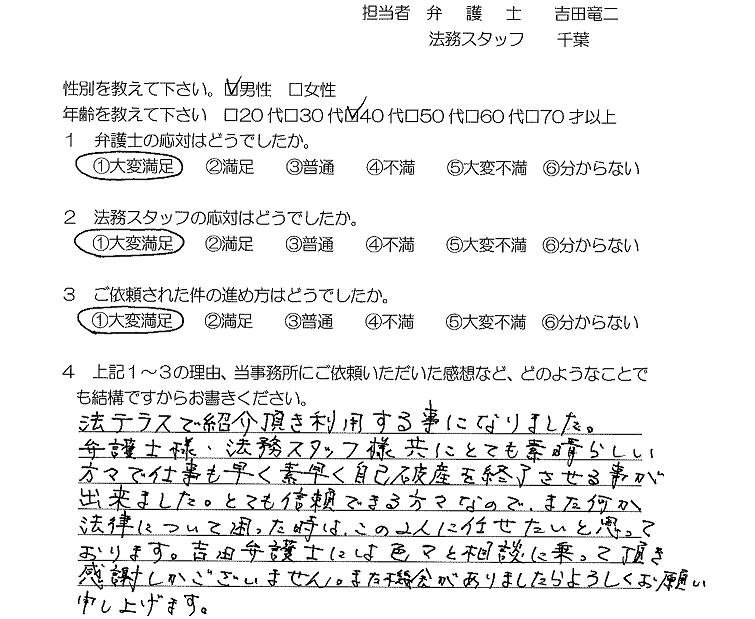 担当者 弁 護 士 吉田竜二
法務スタッフ 千葉
性別を教えて下さい。☑男性 □女性
年齢を教えて下さい □20代□30代☑40代□50代□60代□70才以上
1 弁護士の応対はどうでしたか。
①大変満足 ②満足 ③普通 ④不満 ⑤大変不満 ⑥分からない
2 法務スタッフの応対はどうでしたか。
①大変満足 ②満足 ③普通 ④不満 ⑤大変不満 ⑥分からない
3 ご依頼された件の進め方はどうでしたか。
①大変満足 ②満足 ③普通 ④不満 ⑤大変不満 ⑥分からない
4 上記1～3の理由、当事務所にご依頼いただいた感想など、どのようなことで
も結構ですからお書きください。
法テラスで紹介頂き利用する事になりました。
弁護士様・法務スタッフ様共にとても素晴らしい
方々で仕事も早く素早く自己破産を終了させる事が
出来ました。とても信頼できる方々なので、また何か
法律について困った時は、この2人に任せたいと思って
おります。吉田弁護士には色々と相談に乗って頂き
感謝しかございません。また機会がありましたらよろしくお願い
申し上げます。